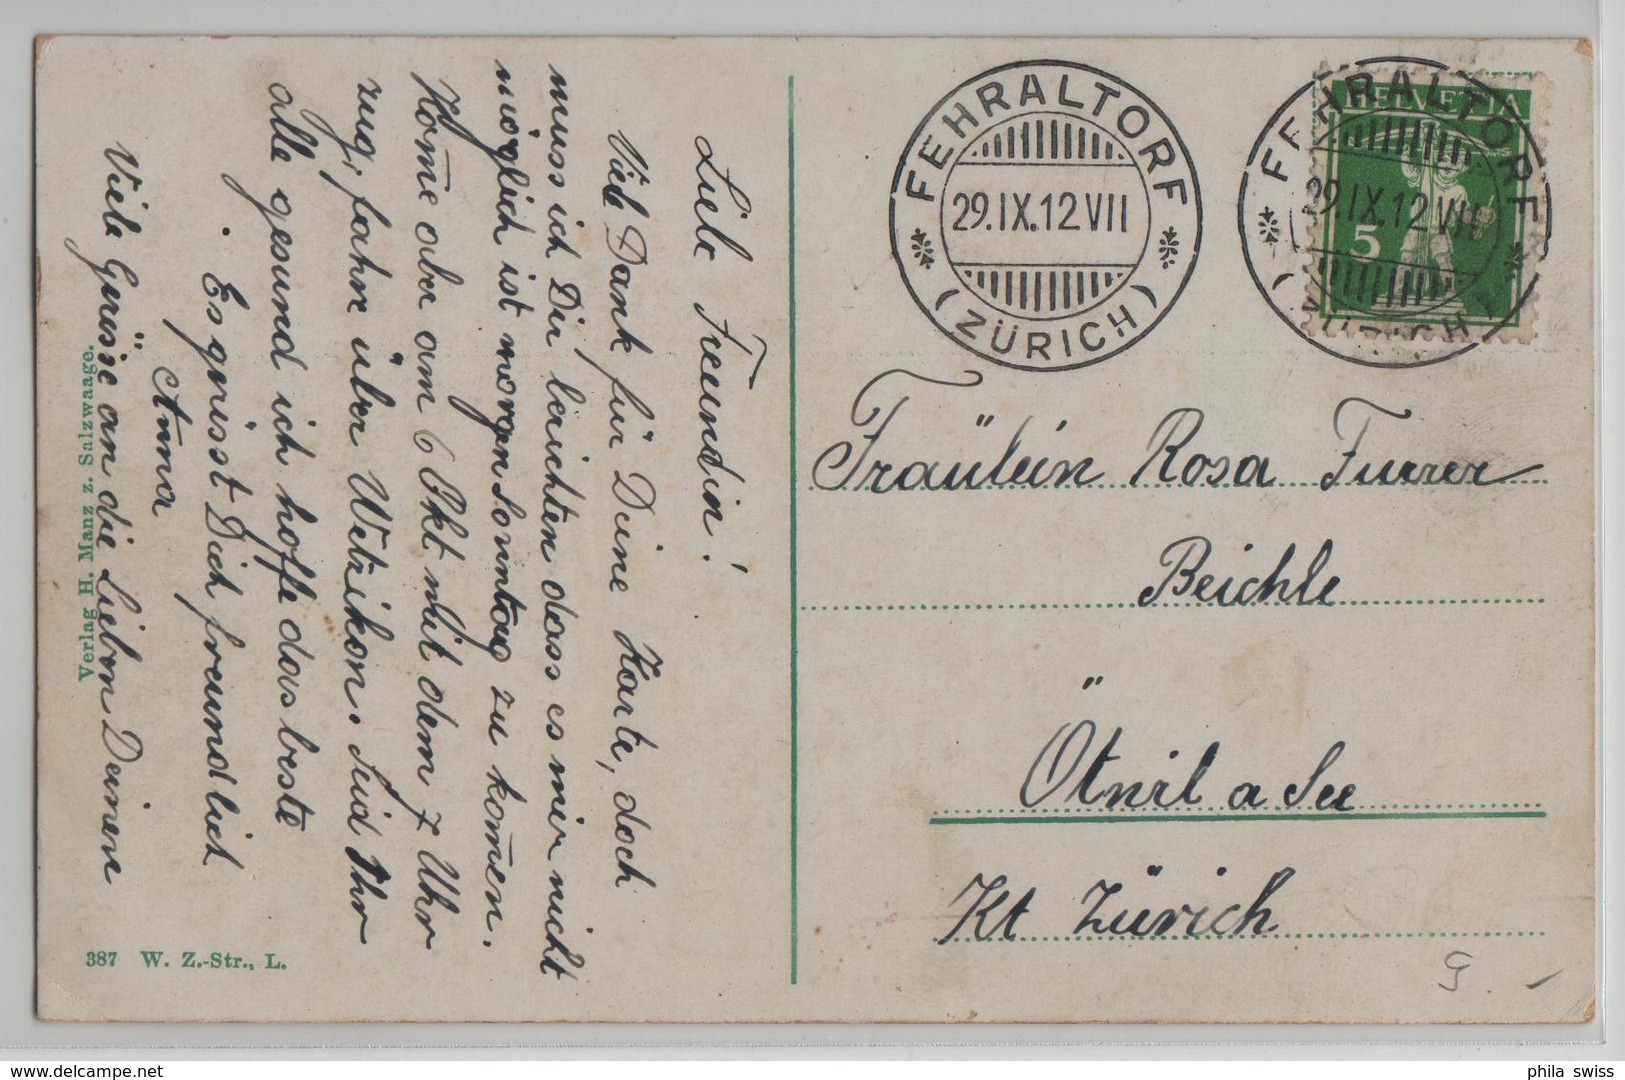 Liebe Freundin!
Viel Dank für Deine Karte, doch
muss ich Dir berichten dass es mir nicht
möglich ist morgen Sonntag zu kom̅en.
Kom̅e aber am 6 Okt mit dem 7 Uhr
zug, fahre über Wetzikon. Seid Ihr
alle gesund ich hoffe das beste
Es grüsst Dich freundlich
Anna
Viele Grüsse an die lieben Deinen
Verlag H. Manz z. Salzwaage.
387 W. Z.-Str., L.
FEHRALTORF
29.IX.12 VII
(ZÜRICH)
HELVETIA
5
FEHRALTORF
29.IX.12 VII
(ZÜRICH)
Fräulein Rosa Furrer
Beichle
Ötwil a See
Kt Zürich
phila swiss